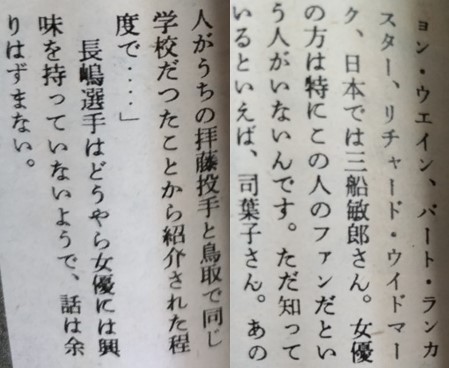 ョン・ウエイン、バート・ランカ
スター、リチャード・ウイドマー
ク、日本では三船敏郎さん。女優
の方は特にこの人のファンだとい
う人がいないんです。ただ知って
いるといえば、司葉子さん。あの
人がうちの拝藤投手と鳥取で同じ
学校だつたことから紹介された程
度で‥‥」
長嶋選手はどうやら女優には興
味を持っていないようで、話は余
りはずまない。